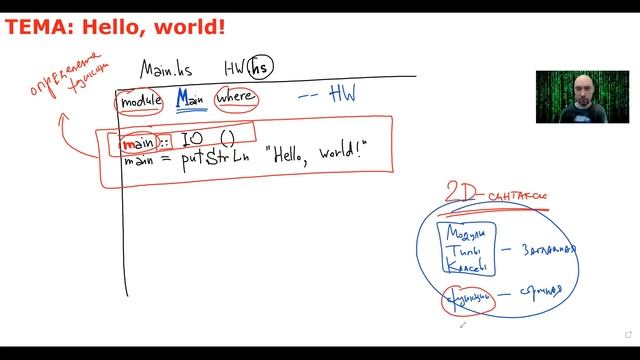 ТЕМА: Hello, world!
Main.hs HW hs
определение
функции
module Main where -- HW
main :: IO ()
main = putStrLn "Hello, world!"
2D-синтаксис
Модули
Типы
Классы
— Заглавная
функции — строчная